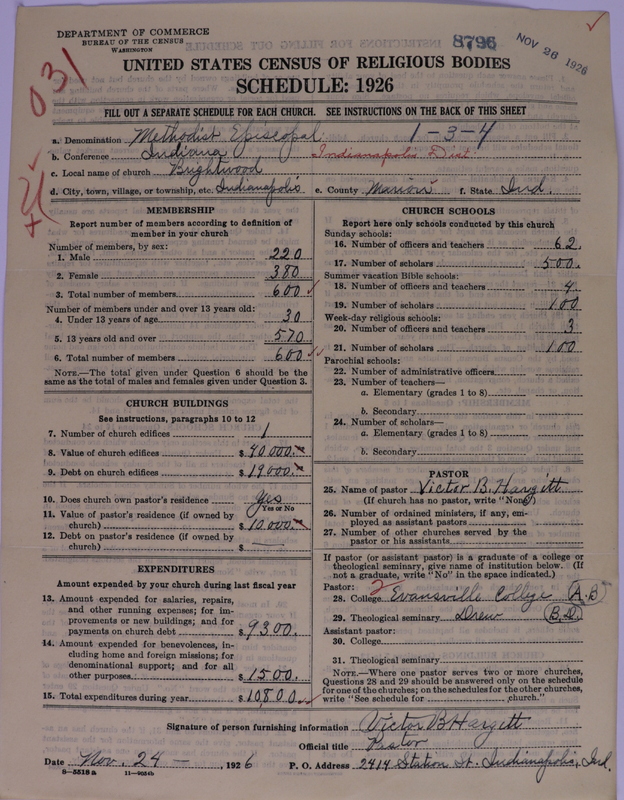 DEPARTMENT OF COMMERCE
BUREAU OF THE CENSUS
WASHINGTON
8796
NOV 26 1926
UNITED STATES CENSUS OF RELIGIOUS BODIES
SCHEDULE: 1926
031
FILL OUT A SEPARATE SCHEDULE FOR EACH CHURCH. SEE INSTRUCTIONS ON THE BACK OF THIS SHEET
a. Denomination Methodist Episcopal 1-3-4
b. Conference Indiana Indianapolis Dist
c. Local name of church Brightwood
d. City, town, village, or township, etc. Indianapolis e. County Marion f. State Ind.
MEMBERSHIP
Report number of members according to definition of member in your church
Number of members, by sex:
1. Male 220
2. Female 380
3. Total number of members 600
Number of members under and over 13 years old:
4. Under 13 years of age 30
5. 13 years old and over 570
6. Total number of members 600
NOTE.—The total given under Question 6 should be
same as the total of males and females given under Question 3.
CHURCH BUILDINGS
See instructions, paragraphs 10 to 12
7. Number of church edifices 1
8. Value of church edifices $ 40000.
9. Debt on church edifices $ 19000.
10. Does church own pastor's residence Yes
Yes or No
11. Value of pastor's residence (if owned by
church) $ 10,000.
12. Debt on pastor's residence (if owned by
church) $ —
EXPENDITURES
Amount expended by your church during last fiscal year
13. Amount expended for salaries, repairs,
and other running expenses; for im-
provements or new buildings; and for
payments on church debt $ 9300.
14. Amount expended for benevolences, in-
cluding home and foreign missions; for
denominational support; and for all
other purposes $ 1500.
15. Total expenditures during year $ 10800
CHURCH SCHOOLS
Report here only schools conducted by this church
Sunday schools:
16. Number of officers and teachers 62.
17. Number of scholars 500.
Summer vacation Bible schools:
18. Number of officers and teachers 4.
19. Number of scholars 100
Week-day religious schools:
20. Number of officers and teachers 3
21. Number of scholars 100
Parochial schools:
22. Number of administrative officers
23. Number of teachers—
a. Elementary (grades 1 to 8)
b. Secondary
24. Number of scholars—
a. Elementary (grades 1 to 8)
b. Secondary
PASTOR
25. Name of pastor Victor B. Hargitt
(If church has no pastor, write "None")
26. Number of ordained ministers, if any, em-
ployed as assistant pastors
27. Number of other churches served by the
pastor or his assistants
If pastor (or assistant pastor) is a graduate of a college or
theological seminary, give name of institution below. (If
not a graduate, write "No" in the space indicated.)
Pastor:
28. College 2 Evansville College A.B
29. Theological seminary Drew B.D.
Assistant pastor:
30. College
31. Theological seminary
NOTE.—Where one pastor serves two or more churches,
Questions 28 and 29 should be answered only on the schedule
for one of the churches; on the schedules for the other churches,
write "See schedule for church."
Signature of person furnishing information Victor B Hargitt
Official title Pastor
Date Nov. 24 —, 1926 P. O. Address 2414 Station St. Indianapolis, Ind.
8—5518a 11—9054b